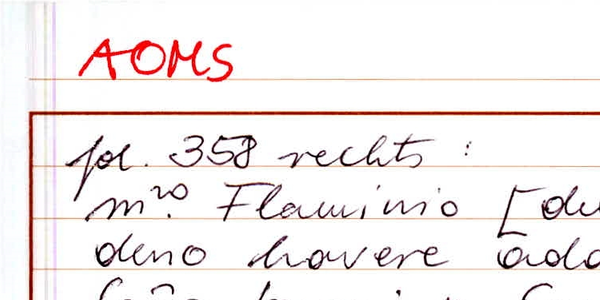 AOMS
fol. 358 rechts :
m.ro Flaminio [de
deno havere add